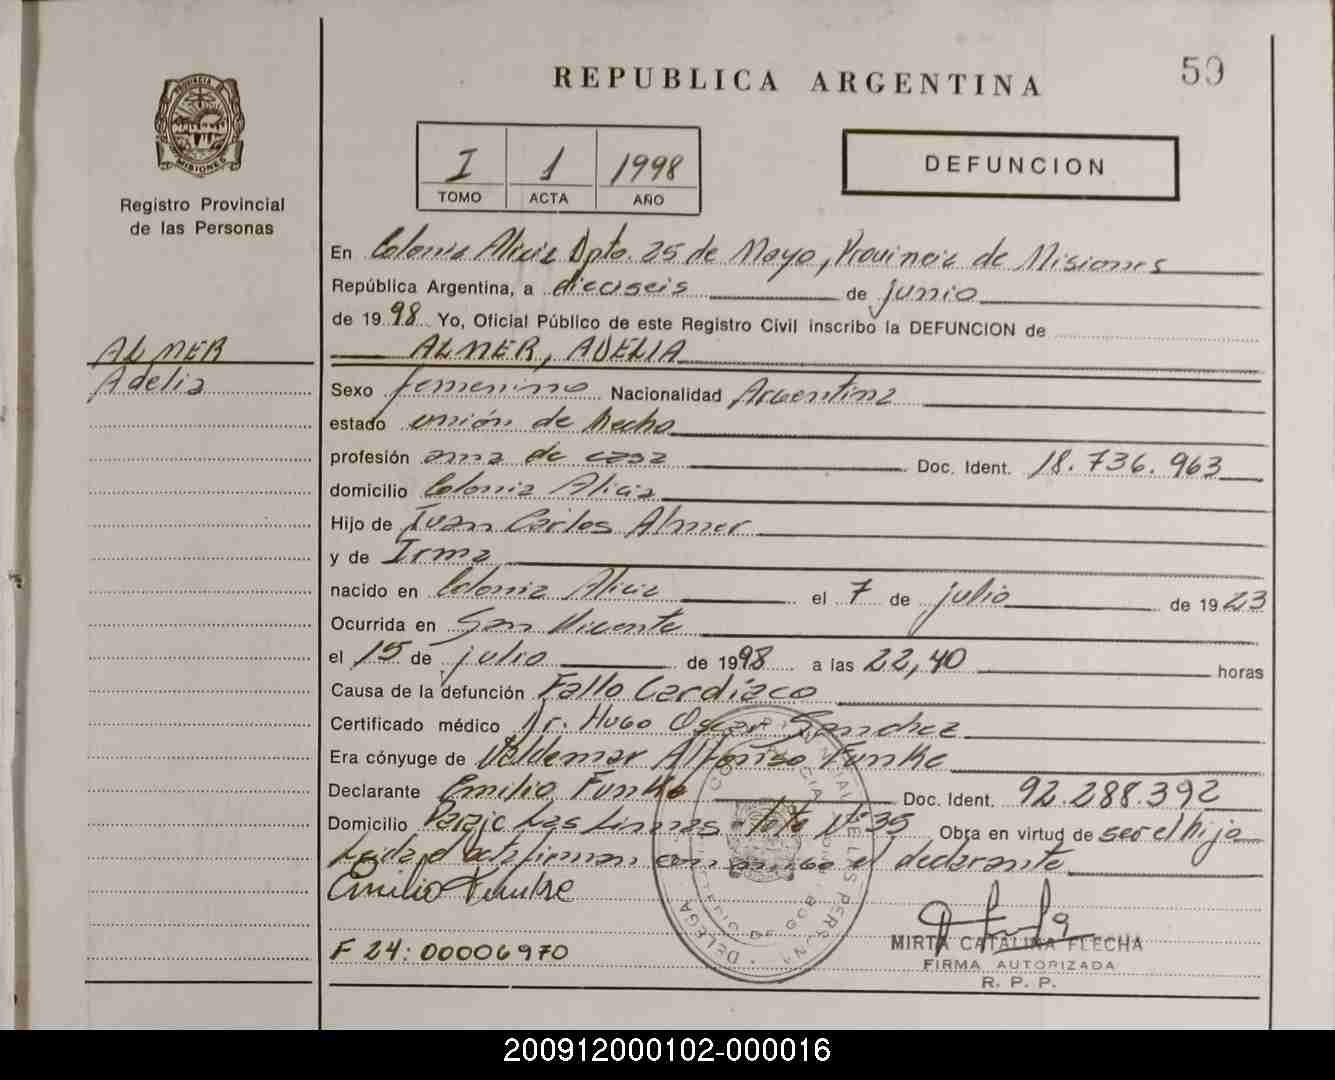 59
REPUBLICA ARGENTINA
PROVINCIA
MISIONES
Registro Provincial
de las Personas
I 1 1998
TOMO ACTA AÑO
DEFUNCION
En Colonia Alicia Dpto. 25 de Mayo, Provincia de Misiones
República Argentina, a dieciseis de junio
de 1998 Yo, Oficial Público de este Registro Civil inscribo la DEFUNCION de
ALMER
Adelia
ALMER, ADELIA
Sexo femenino Nacionalidad Argentina
estado unión de hecho
profesión ama de casa Doc. Ident. 18.736.963
domicilio Colonia Alicia
Hijo de Juan Carlos Almer
y de Irma
nacido en Colonia Alicia el 7 de julio de 1923
Ocurrida en San Vicente
el 15 de julio de 1998 a las 22,40 horas
Causa de la defunción Fallo Cardíaco
Certificado médico Dr. Hugo Oscar Sanchez
Era cónyuge de Valdemar Alfonso Funke
Declarante Emilio Funke Doc. Ident. 92.288.392
Domicilio Paraje Las Limas - lote Nº 35 Obra en virtud de ser el hijo
Leida el acta firman conmigo el declarante
Emilio Funke
MIRTA CATALINA FLECHA
FIRMA AUTORIZADA
R. P. P.
F 24: 00006970
200912000102-000016